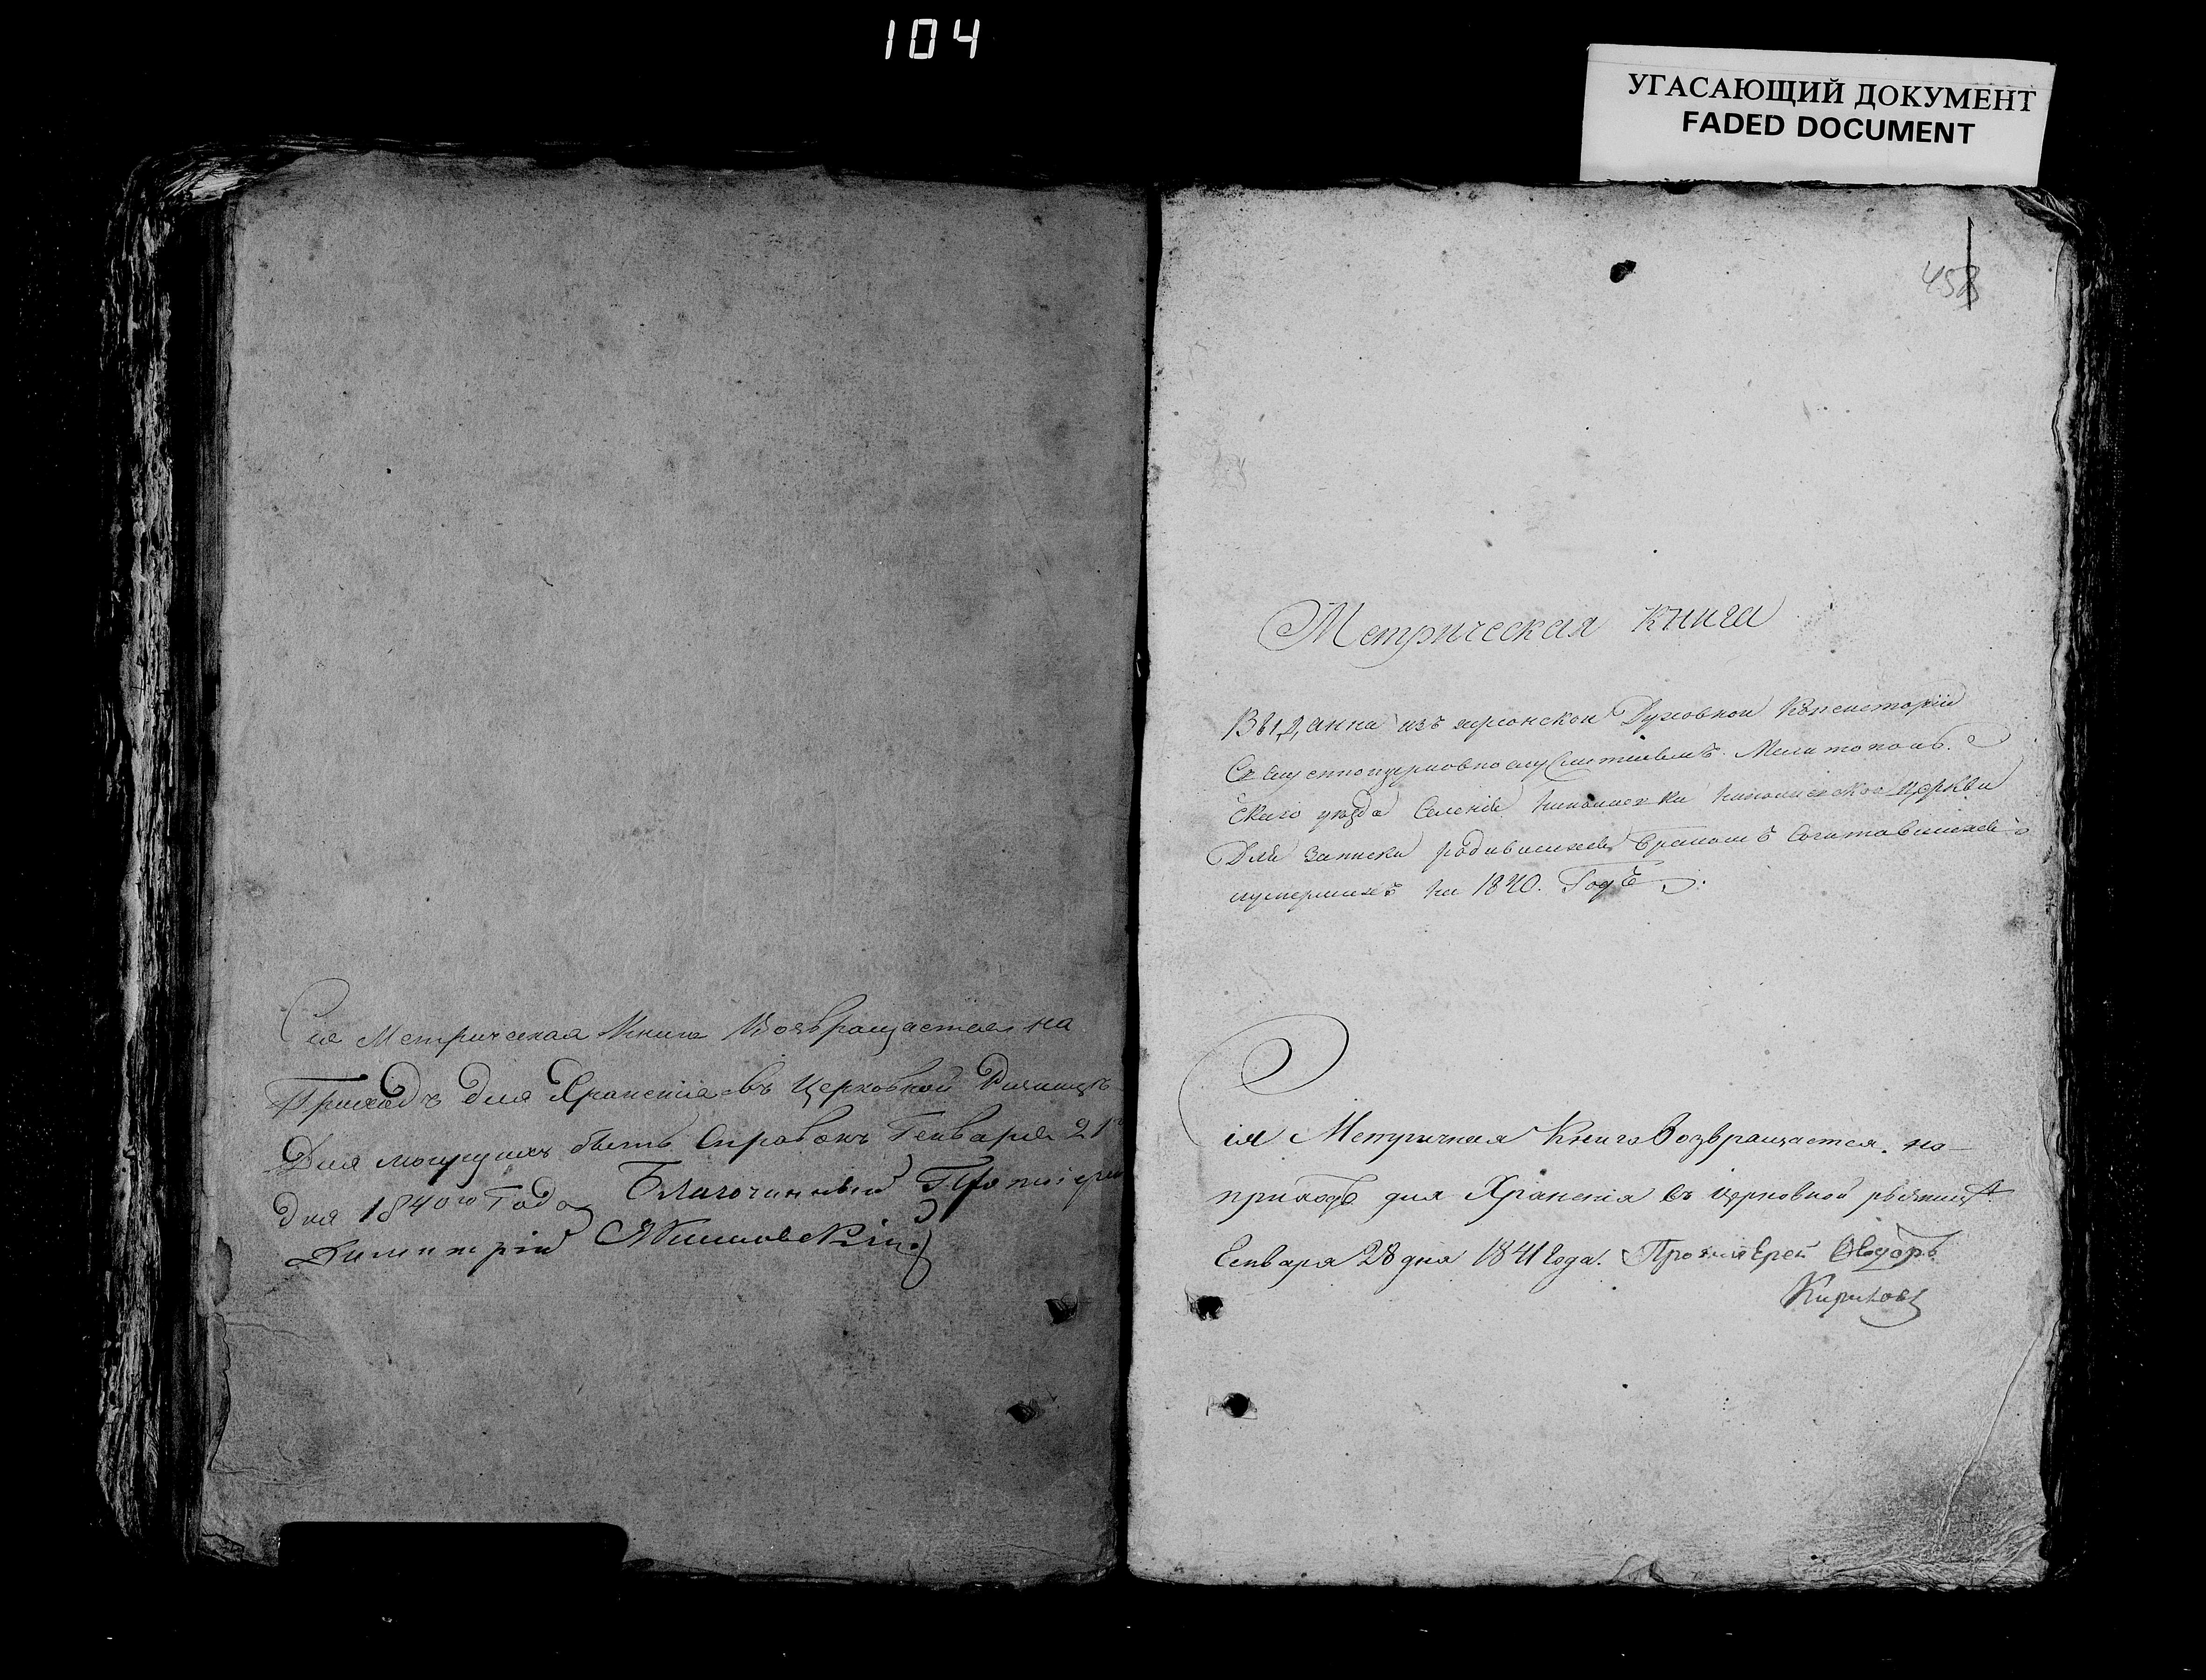 104
УГАСАЮЩИЙ ДОКУМЕНТ
FADED DOCUMENT
Сія Метрическая Книга Возвращается на
Приходъ для Храненія въ Церковной Ризницѣ
Для могущихъ быть Справокъ Генваря 21
дня 1840го Года Благочинный Протоіерей
Димитрій
458
Метрическая книга
Выданна изъ херсонской Духовной Консисторіи
Священноцерковнослужителямъ Мелитополь
скаго уезда Селенія церкви
Для записки родившихся бракомъ Сочитавшихся
иумершихъ на 1840. Годъ
Сія Метричная Книга Возвращается на
приходъ для Храненія въ церковной ризницѣ
Генваря 28 дня 1841 года. Протоіерей Ѳеодоръ
Кириковъ